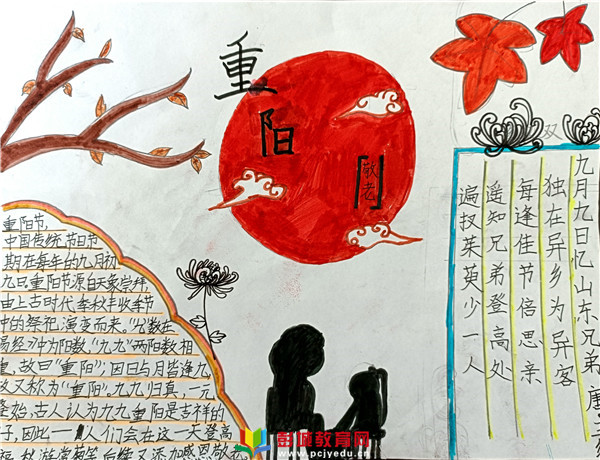 重阳
敬老
重阳节,
中国传统节日节
期在每年的九月初
九日重阳节源自天象崇拜
由上古时代季秋丰收季节
中的祭祀演变而来,"九"数在
易经》中为阳数,"九九"两阳数相
重,故曰"重阳",因日与月皆逢九
故又称为"重阳"。九九归真,一元
肇始,古人认为九九重阳是吉祥的
子,因此一人们会在这一天登高
双
九月九日忆山东兄弟 唐
独在异乡为异客
每逢佳节倍思亲
遥知兄弟登高处
遍扠茱萸少一人
彭城教育网
www.pcjyedu.cn